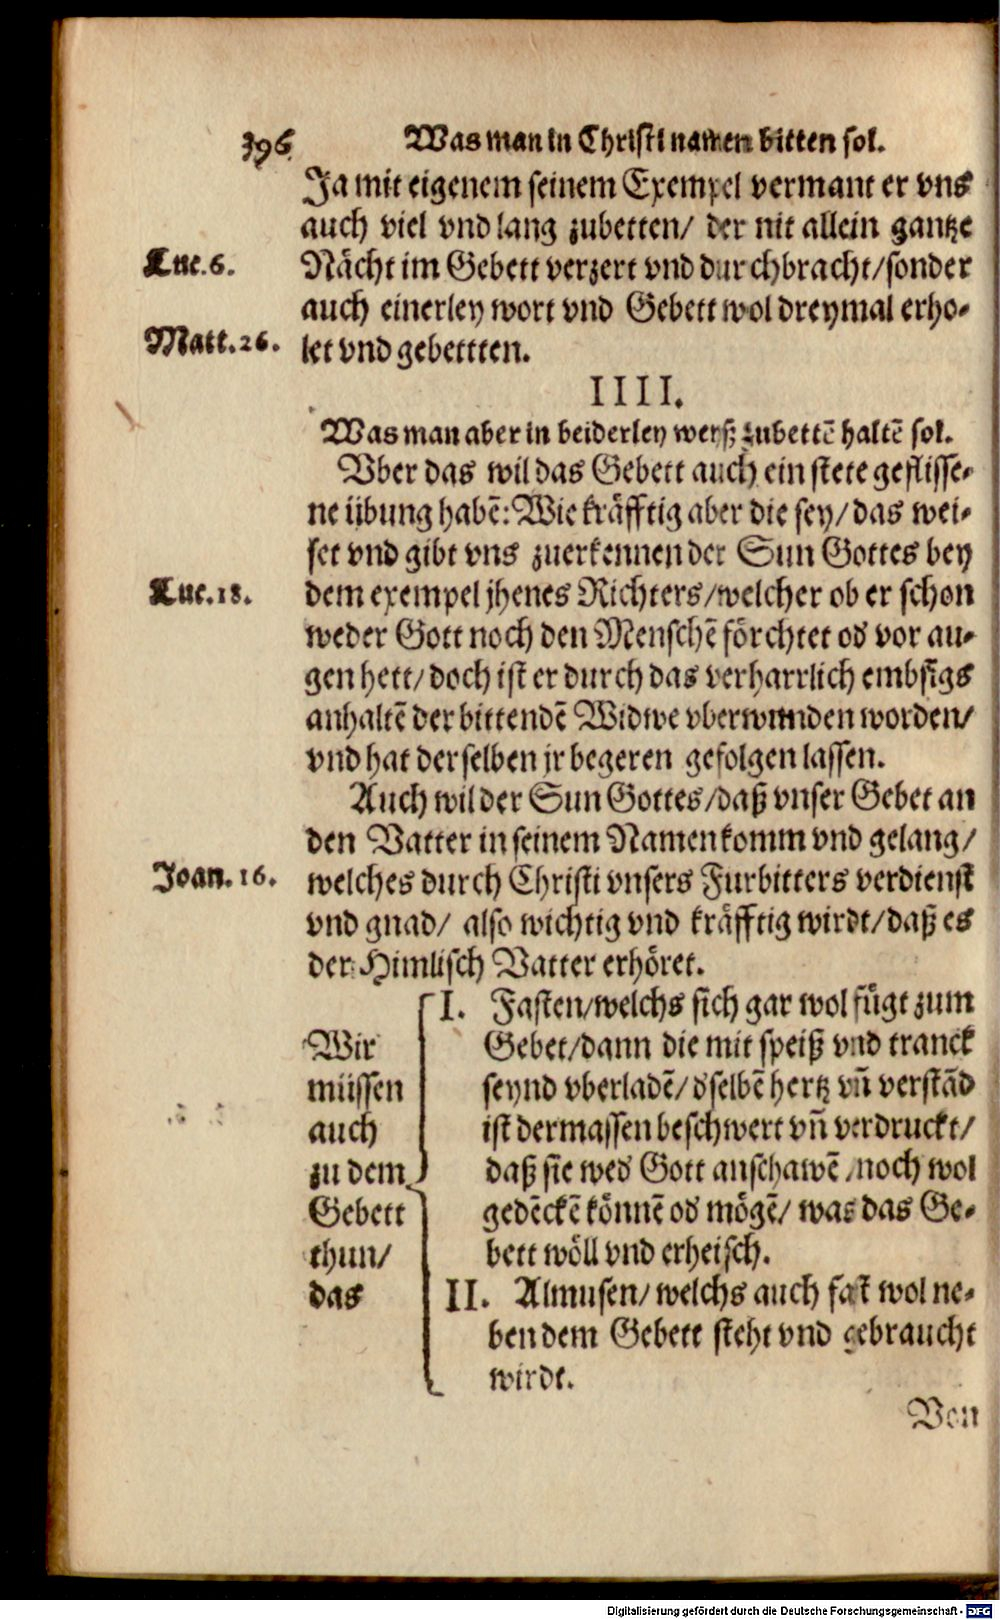 396 Was man in Christi namen bitten sol.
Ja mit eigenem seinem Exempel vermant er vns
auch viel vnd lang zubetten/ der nit allein gantze
Luc. 6. Nächt im Gebett verzert vnd durchbracht/sonder
auch einerley wort vnd Gebett wol dreymal erho-
Matt. 26. let vnd gebettten.
IIII.
Was man aber in beiderley weyß zubettē haltē sol.
Vber das wil das Gebett auch ein stete geflisse-
ne übung habē: Wie kräfftig aber die sey/ das wei-
set vnd gibt vns zuerkennen der Sun Gottes bey
Luc. 18. dem exempel jhenes Richters/welcher ob er schon
weder Gott noch den Menschē förchtet od vor au-
gen hett/ doch ist er durch das verharrlich embsigs
anhaltē der bittendē Widwe vberwunden worden/
vnd hat derselben jr begeren gefolgen lassen.
Auch wil der Sun Gottes/daß vnser Gebet an
den Vatter in seinem Namen komm vnd gelang/
Joan. 16. welches durch Christi vnsers Furbitters verdienst
vnd gnad/ also wichtig vnd kräfftig wirdt/daß es
der Himlisch Vatter erhöret.
I. Fasten/welchs sich gar wol fügt zum
Wir Gebet/dann die mit speiß vnd tranck
müssen seynd vberladē/ dselbē hertz vñ verstād
auch ist dermassen beschwert vñ verdruckt/
zu dem daß sie wed Gott anschawē/noch wol
Gebett gedēckē könnē od mögē/ was das Ge-
thun/ bett wöll vnd erheisch.
das II. Almusen/welchs auch fast wol ne-
ben dem Gebett steht vnd gebraucht
wirdt.
Von
Digitalisierung gefördert durch die Deutsche Forschungsgemeinschaft - DFG